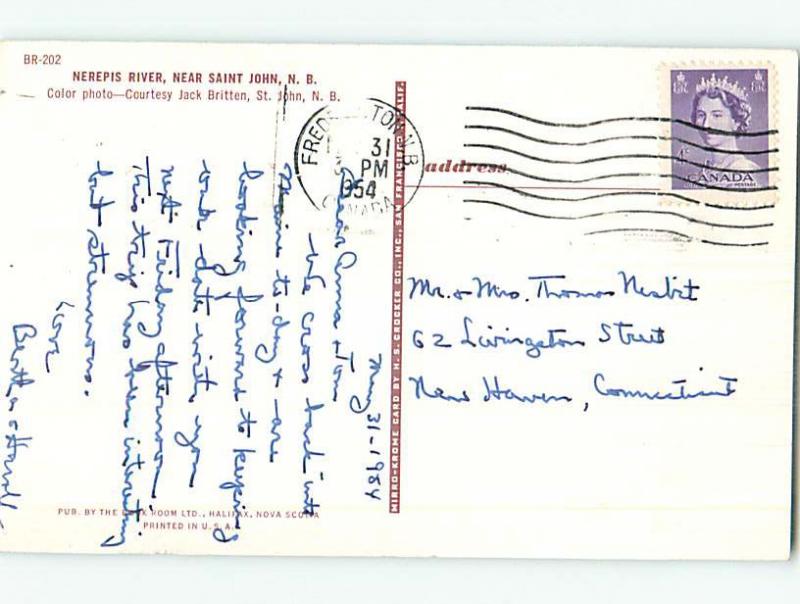 BR-202
NEREPIS RIVER, NEAR SAINT JOHN, N. B.
Color photo—Courtesy Jack Britten, St. John, N. B.
May 31-1954
Dear Anna & Tom
We cross back into
Maine to-day & are
looking forward to keeping
our date with you
next Friday afternoon.
This trip has been interesting
but strenuous.
Love
Bertha & Harold
PUB. BY THE BOOK ROOM LTD., HALIFAX, NOVA SCOTIA
PRINTED IN U. S. A.
MIRRO-KROME CARD BY H. S. CROCKER CO., INC., SAN FRANCISCO, CALIF.
FREDERICTON N.B.
31
PM
1954
CANADA
address
CANADA
Mr. & Mrs. Thomas Nesbit
62 Livingston Street
New Haven, Connecticut